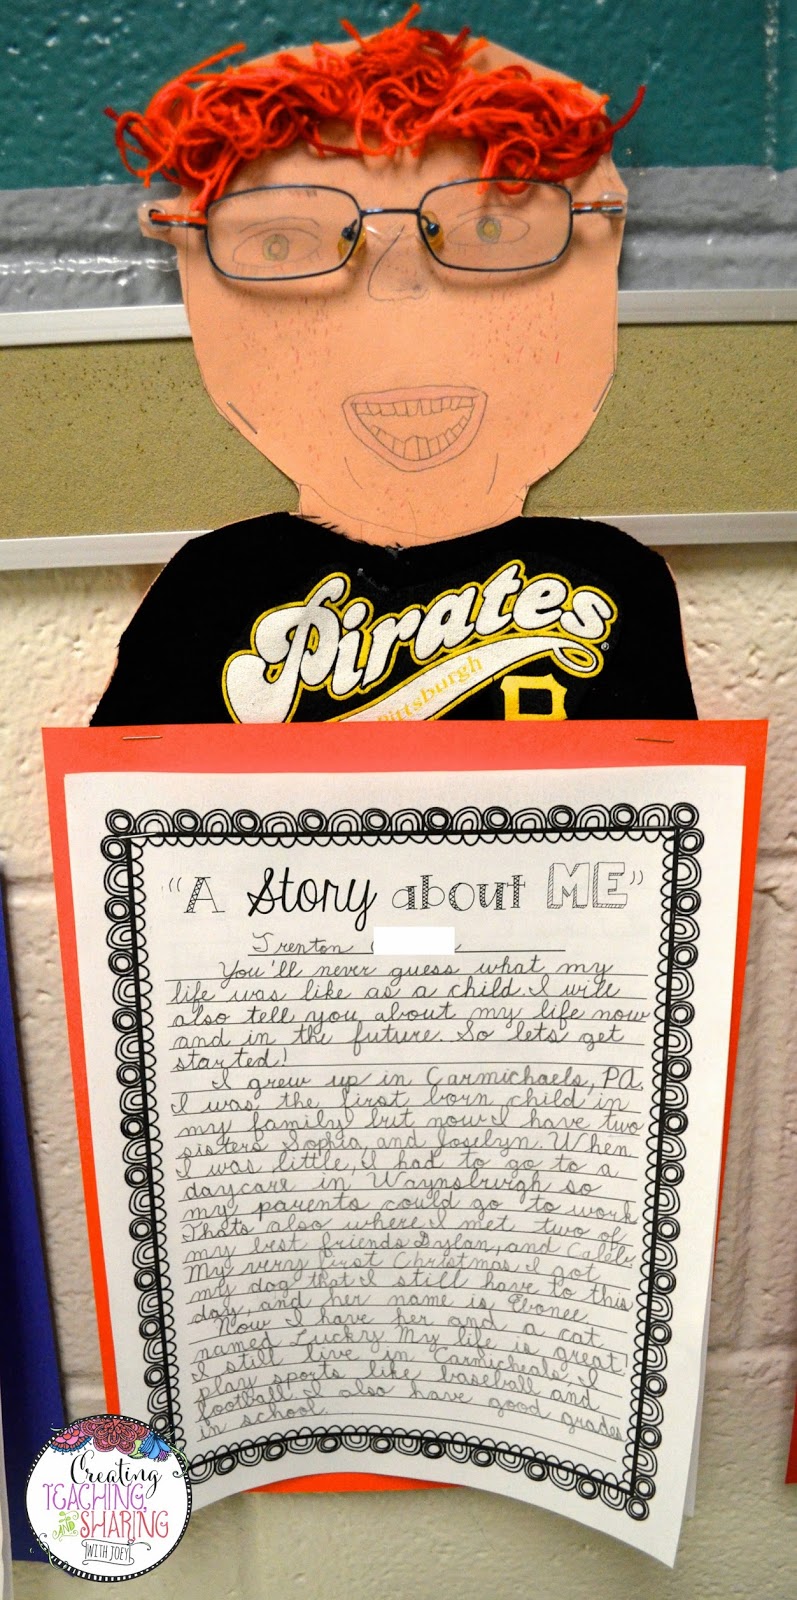 Pirates
Pittsburgh
P
"A Story about ME"
Trenton
You'll never guess what my
life was like as a child. I will
also tell you about my life now
and in the future. So lets get
started!
I grew up in Carmichaels, PA.
I was the first born child in
my family but now I have two
sisters Sophia and Joselyn. When
I was little, I had to go to a
daycare in Waynsburgh so
my parents could go to work
Thats also where I met two of
my best friends Dylan, and Caleb.
My very first Christmas I got
my dog that I still have to this
day, and her name is Ebonee.
Now I have her and a cat
named Lucky. My life is great!
I still live in Carmicheals, I
play sports like baseball and
football. I also have good grades
in school.
Creating
TEACHING,
AND
SHARING
WITH JOEY!